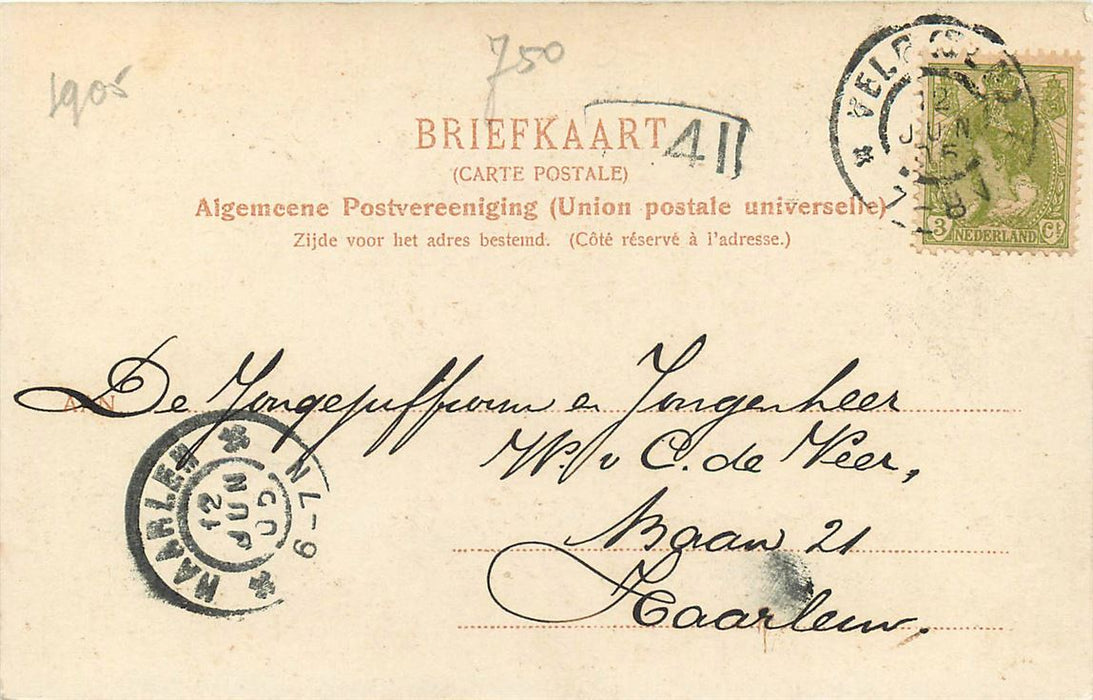 1905
750
BRIEFKAART
411
(CARTE POSTALE)
Algemeene Postvereeniging (Union postale universelle)
Zijde voor het adres bestemd. (Côté réservé à l'adresse.)
12
JUN
3 NEDERLAND Ct
AAN De Jongejuffrouw en Jongenheer
W. v C. de Veer,
Baan 21
Haarlem.
HAARLEM
12
JUN
05